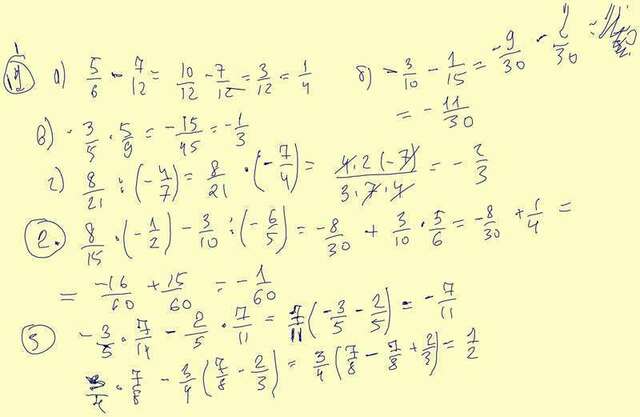 1) а) 5/6 - 7/12 = 10/12 - 7/12 = 3/12 = 1/4 б) -3/10 - 1/15 = -9/30 - 2/30 =
= -11/30
в) -3/5 · 5/9 = -15/45 = -1/3
г) 8/21 : (-4/7) = 8/21 · (-7/4) = 4·2(-7)/3·7·4 = -2/3
2. 8/15 · (-1/2) - 3/10 : (-6/5) = -8/30 + 3/10 · 5/6 = -8/30 + 1/4 =
= -16/60 + 15/60 = -1/60
3 -3/5 · 7/11 - 2/5 · 7/11 = 7/11 (-3/5 - 2/5) = -7/11
3/4 · 7/8 - 3/4 (7/8 - 2/3) = 3/4 (7/8 - 7/8 + 2/3) = 1/2